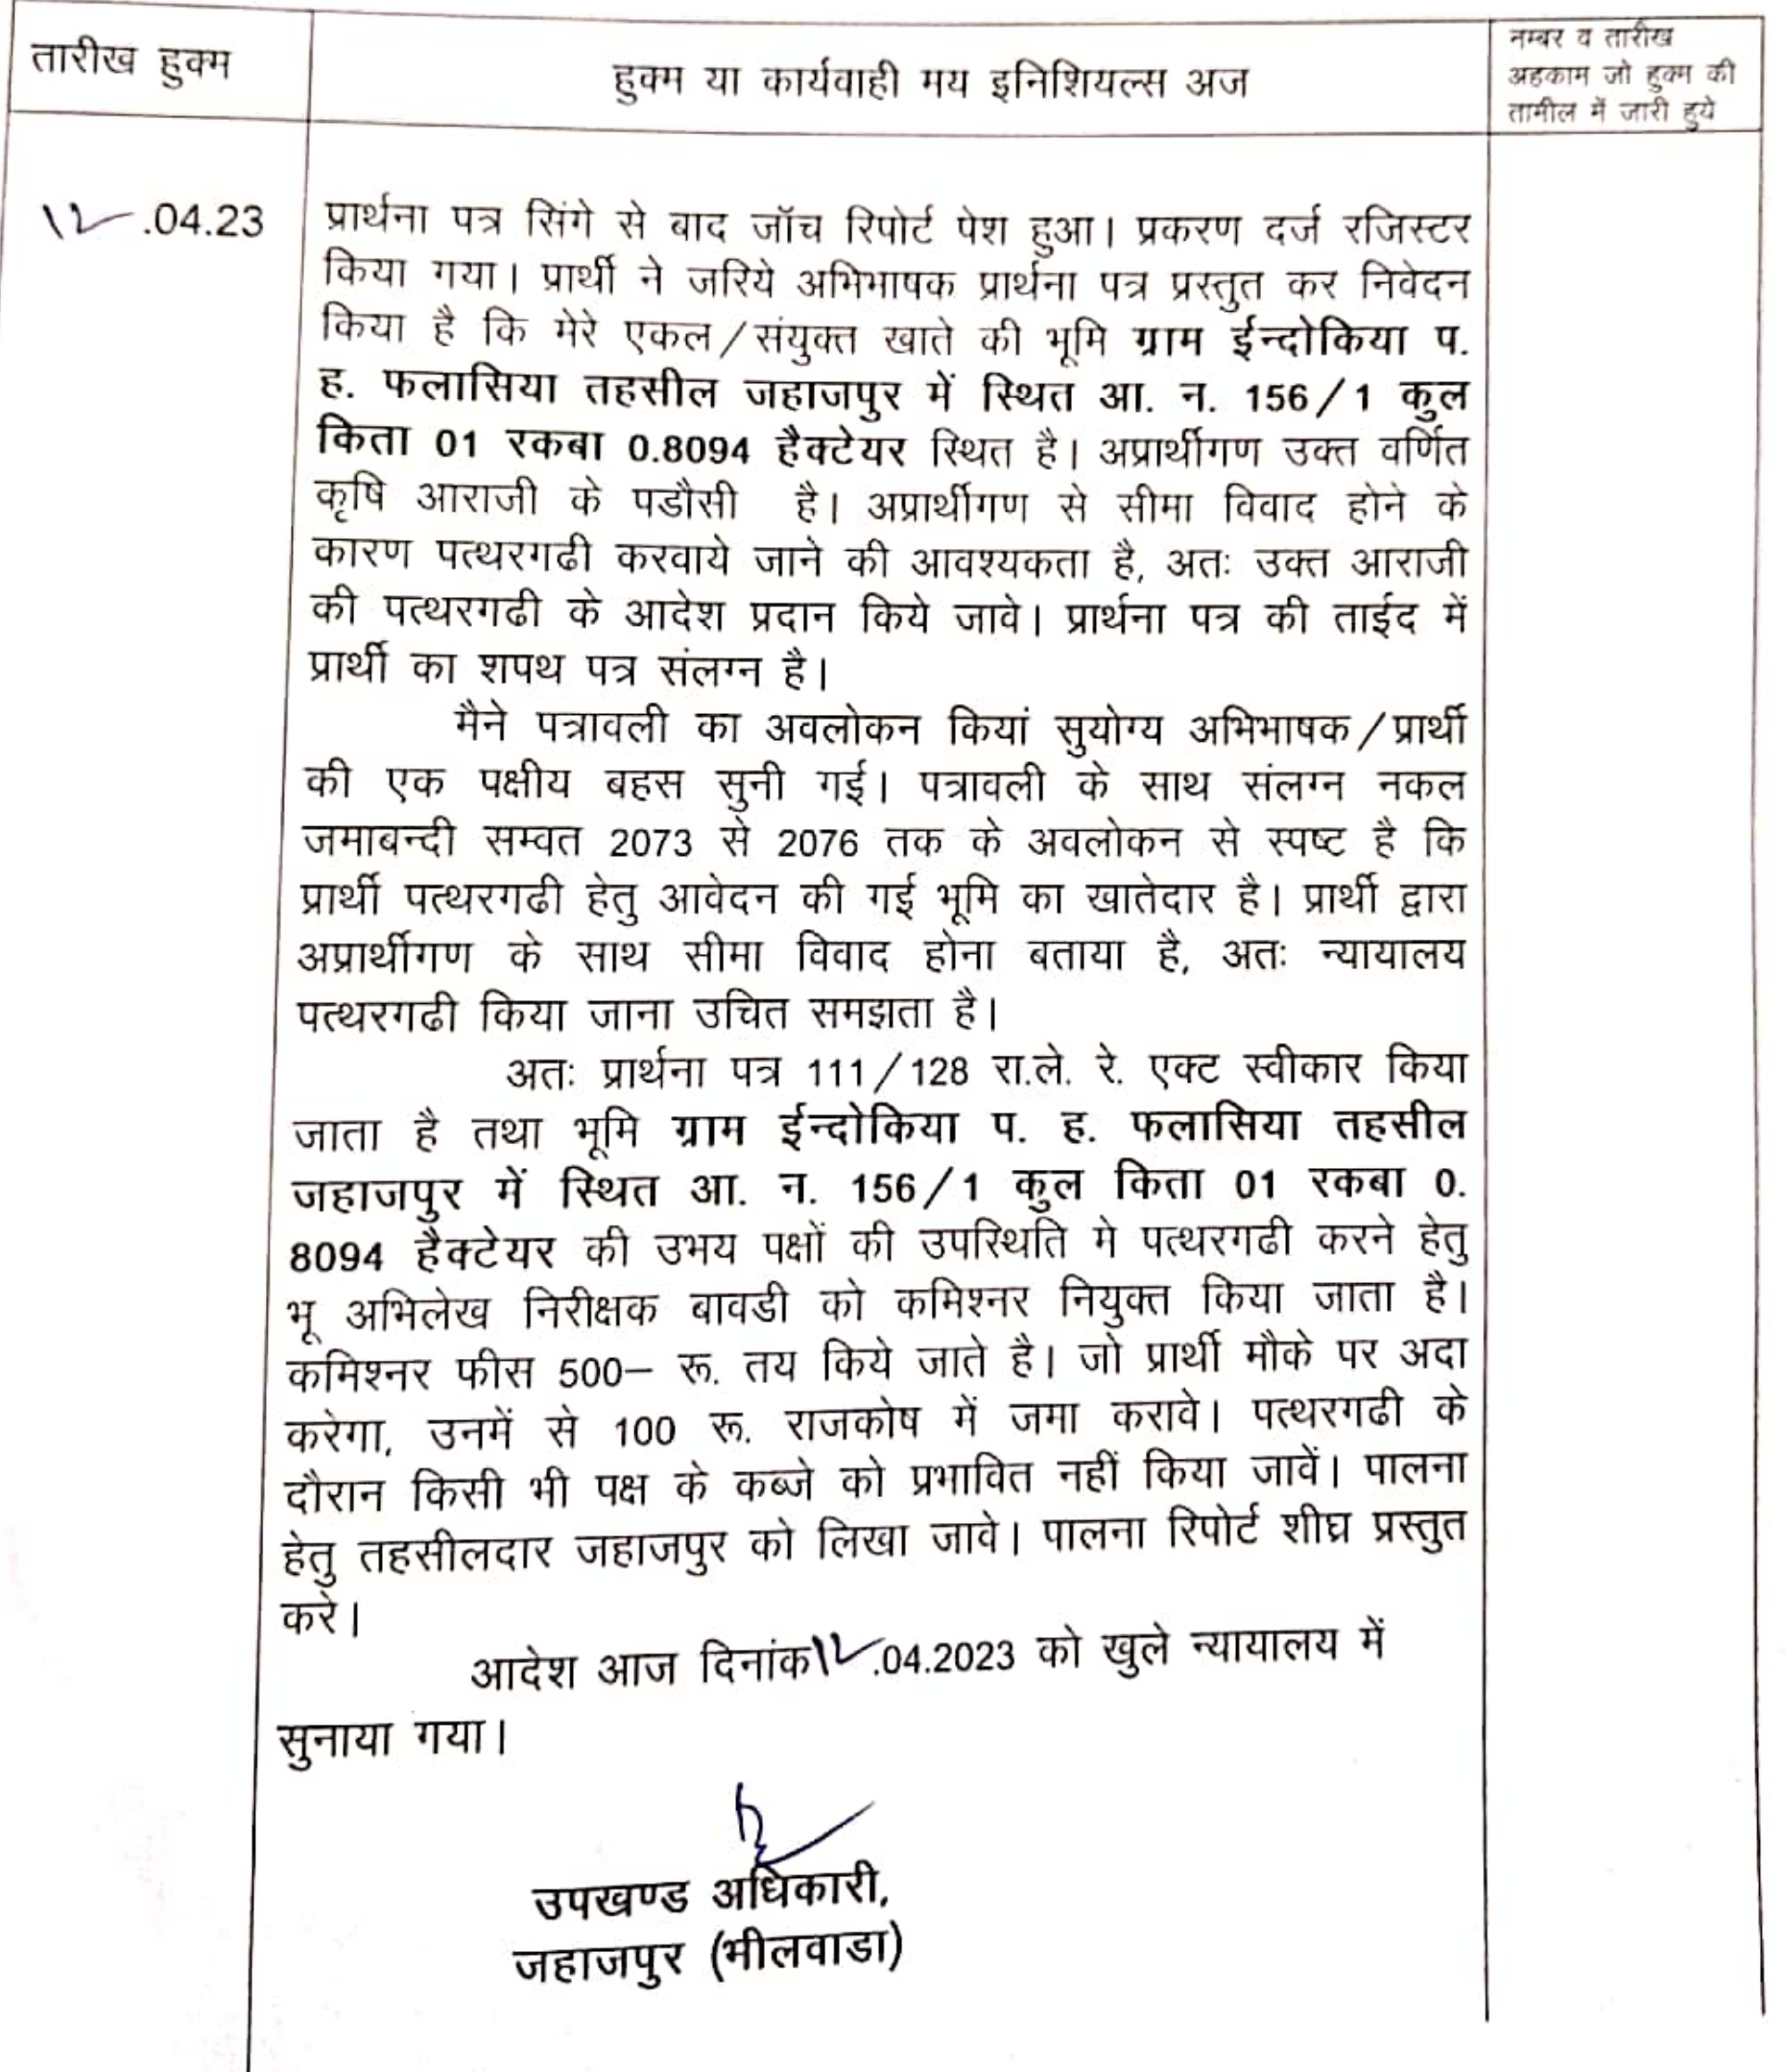 तारीख हुक्म
हुक्म या कार्यवाही मय इनिशियल्स अज
नम्बर व तारीख
अहकाम जो हुक्म की
तामील में जारी हुये
12.04.23
प्रार्थना पत्र सिंगे से बाद जॉच रिपोर्ट पेश हुआ। प्रकरण दर्ज रजिस्टर
किया गया। प्रार्थी ने जरिये अभिभाषक प्रार्थना पत्र प्रस्तुत कर निवेदन
किया है कि मेरे एकल/संयुक्त खाते की भूमि ग्राम ईन्दोकिया प.
ह. फलासिया तहसील जहाजपुर में स्थित आ. न. 156/1 कुल
किता 01 रकबा 0.8094 हैक्टेयर स्थित है। अप्रार्थीगण उक्त वर्णित
कृषि आराजी के पडौसी है। अप्रार्थीगण से सीमा विवाद होने के
कारण पत्थरगढी करवाये जाने की आवश्यकता है, अतः उक्त आराजी
की पत्थरगढी के आदेश प्रदान किये जावे। प्रार्थना पत्र की ताईद में
प्रार्थी का शपथ पत्र संलग्न है।
मैने पत्रावली का अवलोकन कियां सुयोग्य अभिभाषक/प्रार्थी
की एक पक्षीय बहस सुनी गई। पत्रावली के साथ संलग्न नकल
जमाबन्दी सम्वत 2073 से 2076 तक के अवलोकन से स्पष्ट है कि
प्रार्थी पत्थरगढी हेतु आवेदन की गई भूमि का खातेदार है। प्रार्थी द्वारा
अप्रार्थीगण के साथ सीमा विवाद होना बताया है, अतः न्यायालय
पत्थरगढी किया जाना उचित समझता है।
अतः प्रार्थना पत्र 111/128 रा.ले. रे. एक्ट स्वीकार किया
जाता है तथा भूमि ग्राम ईन्दोकिया प. ह. फलासिया तहसील
जहाजपुर में स्थित आ. न. 156/1 कुल किता 01 रकबा 0.
8094 हैक्टेयर की उभय पक्षों की उपस्थिति मे पत्थरगढी करने हेतु
भू अभिलेख निरीक्षक बावडी को कमिश्नर नियुक्त किया जाता है।
कमिश्नर फीस 500– रू. तय किये जाते है। जो प्रार्थी मौके पर अदा
करेगा, उनमें से 100 रू. राजकोष में जमा करावे। पत्थरगढी के
दौरान किसी भी पक्ष के कब्जे को प्रभावित नहीं किया जावें। पालना
हेतु तहसीलदार जहाजपुर को लिखा जावे। पालना रिपोर्ट शीघ्र प्रस्तुत
करे।
आदेश आज दिनांक12.04.2023 को खुले न्यायालय में
सुनाया गया।
उपखण्ड अधिकारी,
जहाजपुर (भीलवाडा)